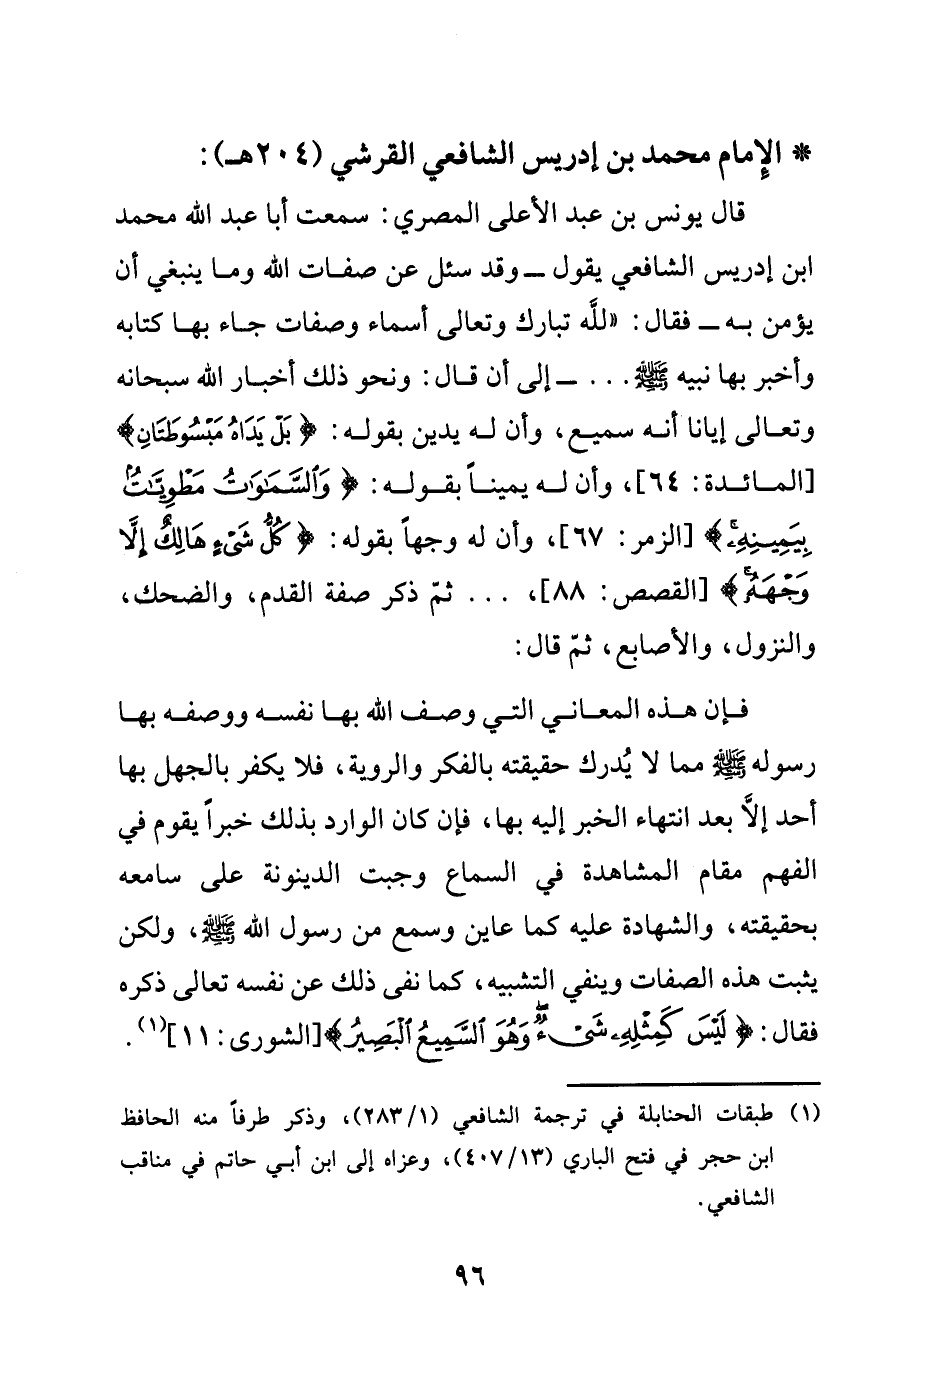 * الإمام محمد بن إدريس الشافعي القرشي (٢٠٤هـ):
قال يونس بن عبد الأعلى المصري: سمعت أبا عبد الله محمد
ابن إدريس الشافعي يقول ـ وقد سئل عن صفات الله وما ينبغي أن
يؤمن به ـ فقال: «للَّه تبارك وتعالى أسماء وصفات جاء بها كتابه
وأخبر بها نبيه ﷺ . . . ـ إلى أن قال: ونحو ذلك أخبار الله سبحانه
وتعالى إيانا أنه سميع، وأن له يدين بقوله: ﴿بَلْ يَدَاهُ مَبْسُوطَتَانِ﴾
[المائدة: ٦٤]، وأن له يميناً بقوله: ﴿وَٱلسَّمَٰوَٰتُ مَطْوِيَّٰتٌۢ
بِيَمِينِهِۦ﴾ [الزمر: ٦٧]، وأن له وجهاً بقوله: ﴿كُلُّ شَىْءٍ هَالِكٌ إِلَّا
وَجْهَهُۥ﴾ [القصص: ٨٨]، . . . ثمّ ذكر صفة القدم، والضحك،
والنزول، والأصابع، ثمّ قال:
فإن هذه المعاني التي وصف الله بها نفسه ووصفه بها
رسوله ﷺ مما لا يُدرك حقيقته بالفكر والروية، فلا يكفر بالجهل بها
أحد إلاَّ بعد انتهاء الخبر إليه بها، فإن كان الوارد بذلك خبراً يقوم في
الفهم مقام المشاهدة في السماع وجبت الدينونة على سامعه
بحقيقته، والشهادة عليه كما عاين وسمع من رسول الله ﷺ، ولكن
يثبت هذه الصفات وينفي التشبيه، كما نفى ذلك عن نفسه تعالى ذكره
فقال: ﴿لَيْسَ كَمِثْلِهِۦ شَىْءٌۖ وَهُوَ ٱلسَّمِيعُ ٱلْبَصِيرُ﴾ [الشورى: ١١](١).
(١) طبقات الحنابلة في ترجمة الشافعي (١/٢٨٣)، وذكر طرفاً منه الحافظ
ابن حجر في فتح الباري (١٣/٤٠٧)، وعزاه إلى ابن أبي حاتم في مناقب
الشافعي.
٩٦